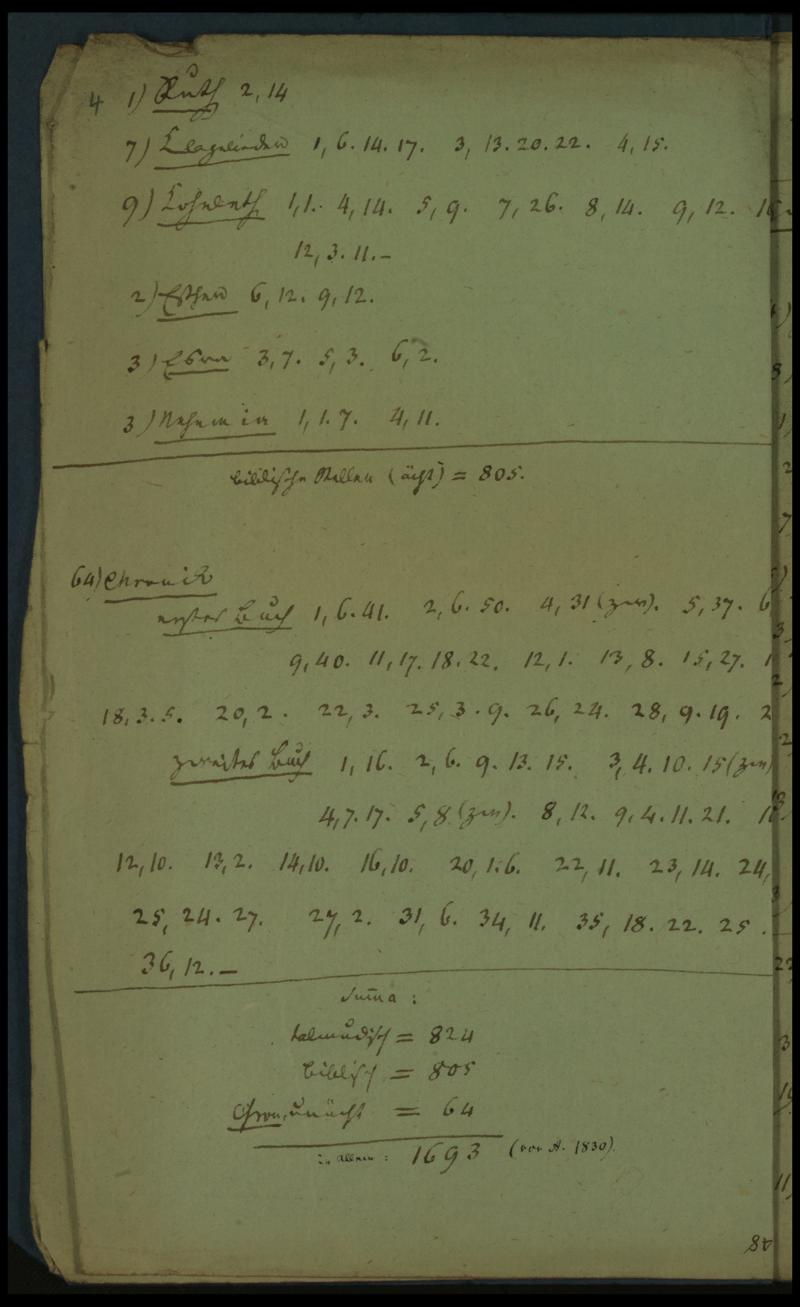 4 1) Ruth 2, 14
7) Klagelieder 1, 6. 14. 17. 3, 13. 20. 22. 4, 15.
9) Koheleth 1, 1. 4, 14. 5, 9. 7, 26. 8, 14. 9, 12.
12, 3. 11. –
2) Esther 6, 12. 9, 12.
3) Esra 3, 7. 5, 3. 6, 2.
3) Nehemia 1, 1. 7. 4, 11.
biblische Stellen (ächt) = 805.
64) Chronik
erstes Buch 1, 6. 41. 2, 6. 50. 4, 31 (zw). 5, 37. 6
9, 40. 11, 17. 18. 22. 12, 1. 13, 8. 15, 27. 1
18, 3. 5. 20, 2. 22, 3. 25, 3. 9. 26, 24. 28, 9. 19. 2
zweites Buch 1, 16. 2, 6. 9. 13. 15. 3, 4. 10. 15 (zw)
4, 7. 17. 5, 8 (zw). 8, 12. 9, 4. 11. 21. 1
12, 10. 13, 2. 14, 10. 16, 10. 20, 1. 6. 22, 11. 23, 14. 24,
25, 24. 27. 27, 2. 31, 6. 34, 11. 35, 18. 22. 25.
36, 12. –
Suma :
talmudisch = 824
biblisch = 805
Chron. unächt = 64
in allem : 1693 (vor A. 1830).